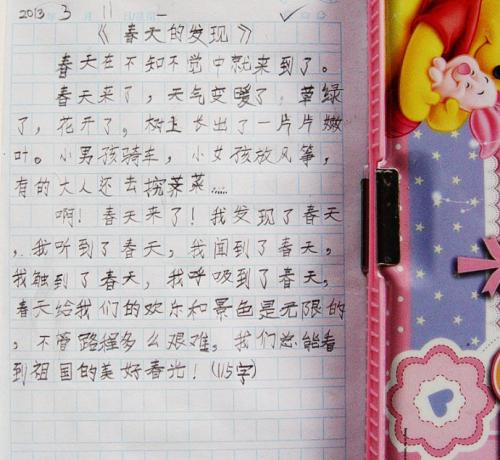 2013 3 11
《春天的发现》
春天在不知不觉中就来到了。
春天来了，天气变暖了，草绿
了，花开了，树上长出了一片片嫩
叶。小男孩骑车，小女孩放风筝，
有的大人还去挖荠菜……
啊！春天来了！我发现了春天
，我听到了春天，我闻到了春天，
我触到了春天，我呼吸到了春天，
春天给我们的欢乐和景色是无限的
，不管路程多么艰难，我们总能看
到祖国的美好春光！(115字)